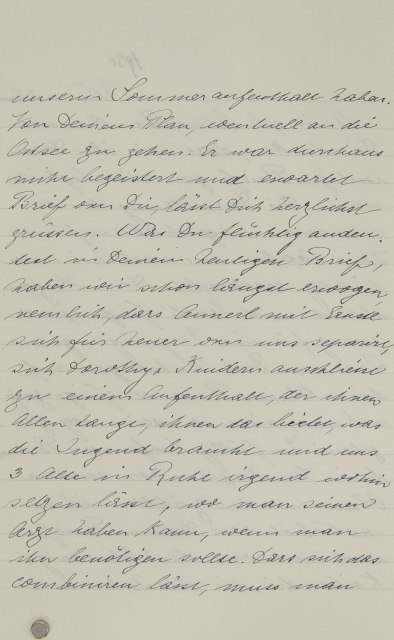 unserm Sommeraufenthalt haben.
Von Deinem Plan, eventuell an die
Ostsee zu gehen. Er war durchaus
nicht begeistert und erwartet
Brief von Dir, lässt Dich herzlichst
grüssen. Was Du flüchtig anden-
test in Deinem heutigen Brief,
haben wir schon längst erwogen,
nemlich, dass Annerl mit Ernstl
sich für heuer von uns separirt,
sich Dorothys Kindern anschliesst
zu einem Aufenthalt, der ihnen
Allen tauge, ihnen das bietet, was
die Jugend braucht und uns
3 Alte in Ruhe irgend wohin
setzen lässt, wo man seinen
Arzt haben kann, wenn man
ihn benötigen sollte. Dass sich das
combiniren lässt, muss man